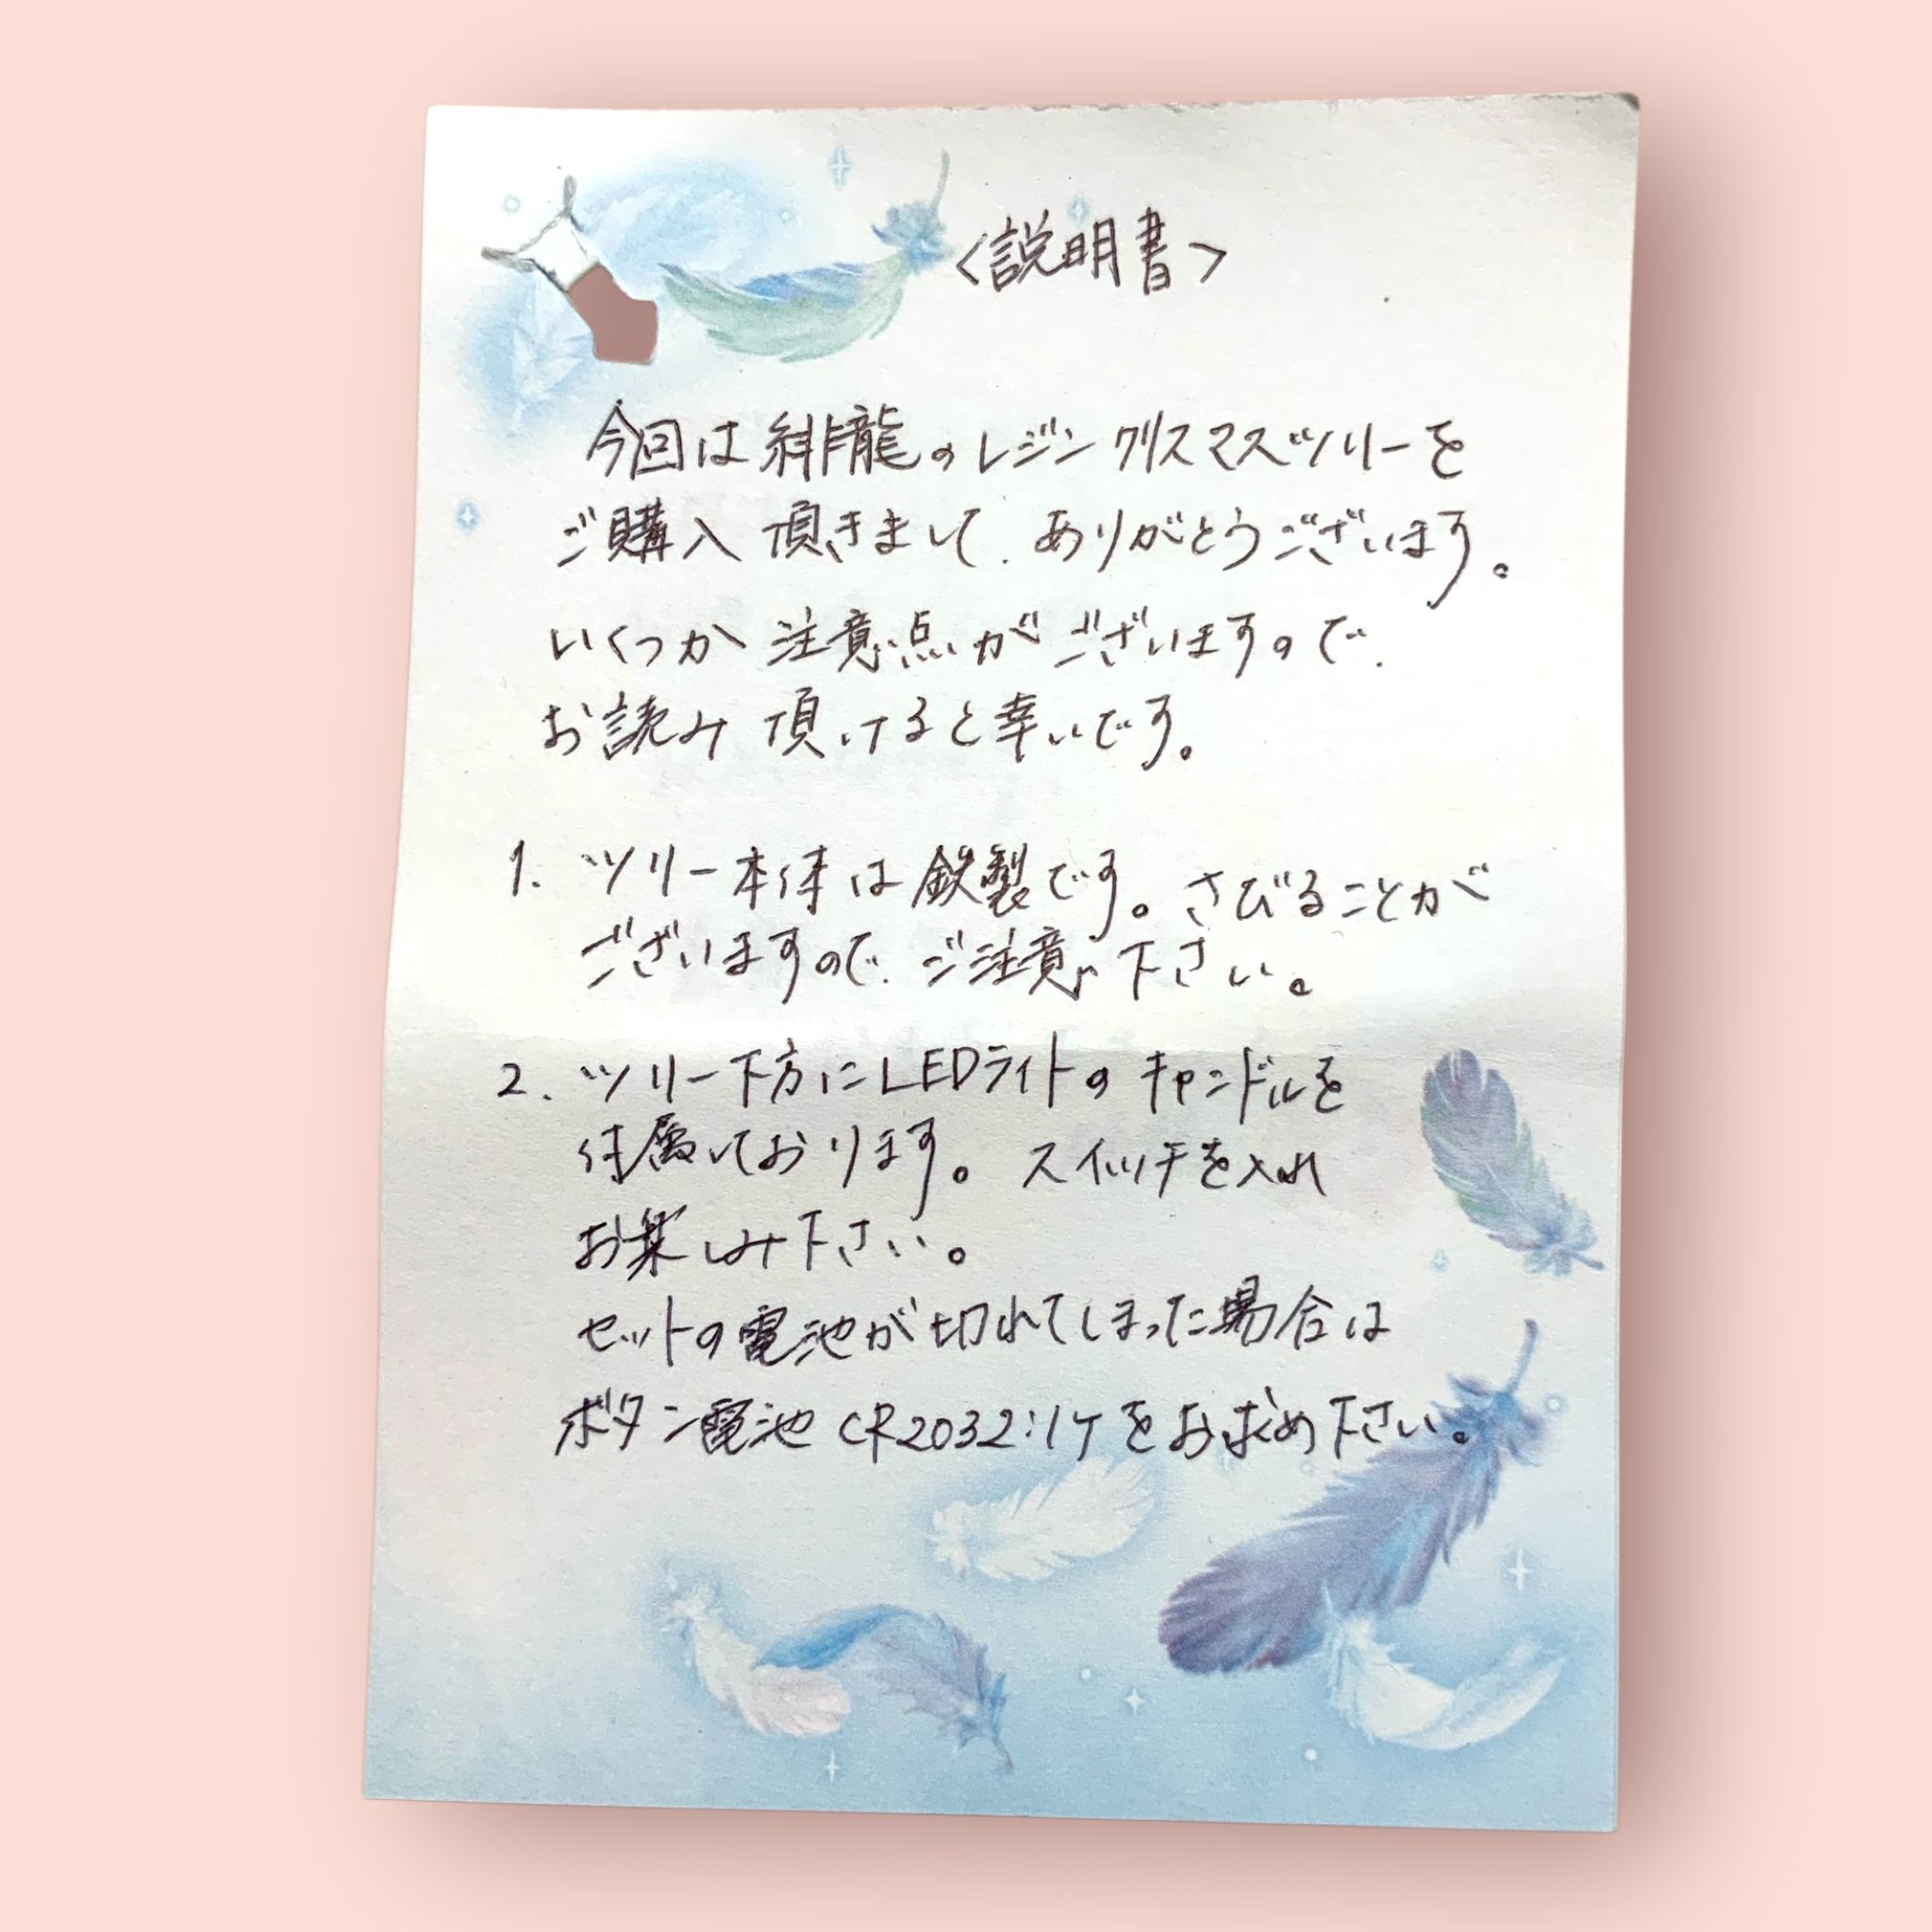 <説明書>
今回は緋龍のレジンクリスマスツリーを
ご購入頂きまして、ありがとうございます。
いくつか注意点がございますので、
お読み頂けると幸いです。
1. ツリー本体は鉄製です。さびることが
ございますので、ご注意下さい。
2. ツリー下方にLEDライトのキャンドルを
付属しております。スイッチを入れ
お楽しみ下さい。
セットの電池が切れてしまった場合は
ボタン電池CR2032:1ケをお求め下さい。